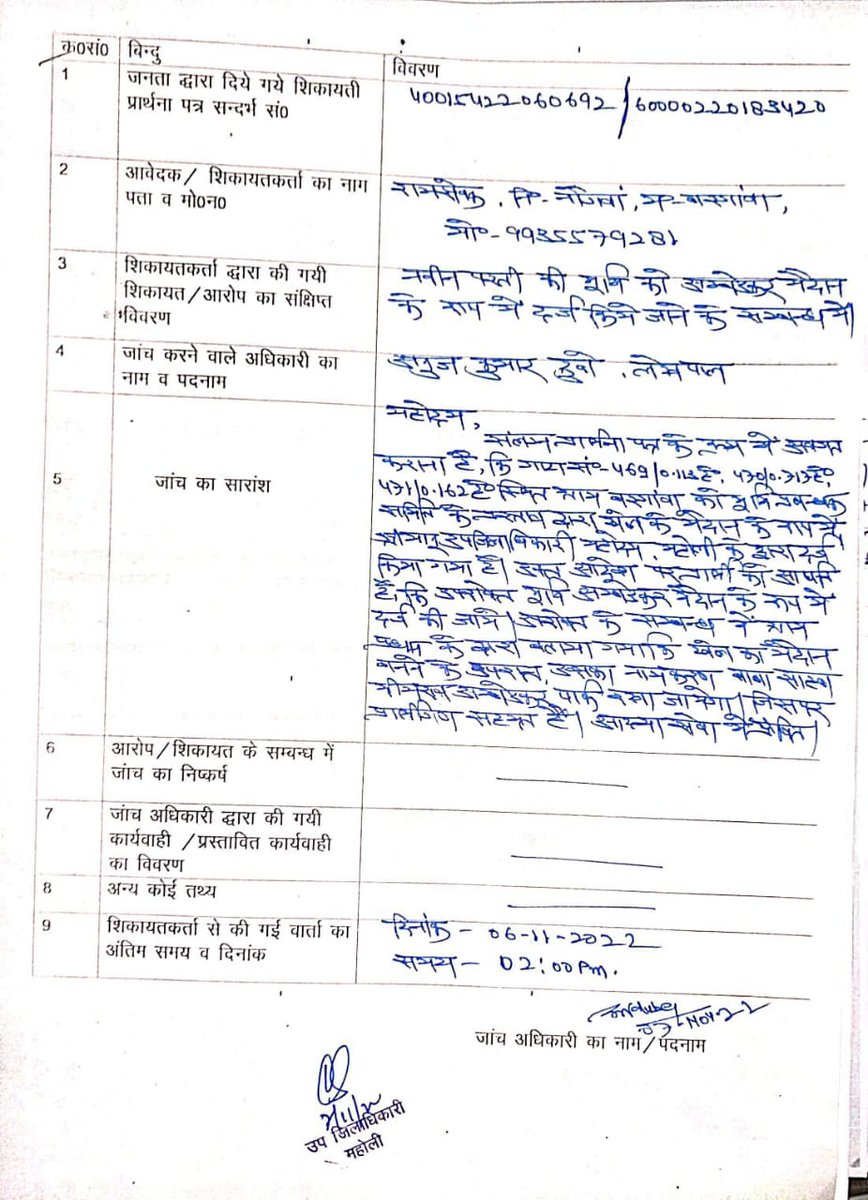 क०सं० बिन्दु विवरण
1 जनता द्वारा दिये गये शिकायती
प्रार्थना पत्र सन्दर्भ सं०
40015422060692/60000220183420
2 आवेदक/ शिकायतकर्ता का नाम
पता व मो०न०
रामसेवक, नि०-
मो०-9935579281
3 शिकायतकर्ता द्वारा की गयी
शिकायत/आरोप का संक्षिप्त
विवरण
नवीन परती की भूमि को अम्बेडकर मैदान
के रूप में दर्ज किये जाने के सम्बन्ध में।
4 जांच करने वाले अधिकारी का
नाम व पदनाम
अनुज कुमार दुबे, लेखपाल
5 जांच का सारांश
महोदय,
संलग्न प्रार्थना पत्र के क्रम में अवगत
कराना है, कि गाटा सं०-469/0.113हे०, 430/0.313हे०
431/0.162हे० स्थित ग्राम बरगांवा की भूमि प्रबन्धक
समिति के प्रस्ताव द्वारा खेल के मैदान के रूप में
श्रीमान उपजिलाधिकारी महोदय, महोली के द्वारा दर्ज
किया गया है। उक्त आदेश पर प्रार्थी की आपत्ति
है, कि उपरोक्त भूमि अम्बेडकर मैदान के रूप में
दर्ज की जाये। उपरोक्त के सम्बन्ध में ग्राम
प्रधान के द्वारा बताया गया कि खेल का मैदान
बनने के उपरान्त, उसका नामकरण बाबा साहब
भीमराव अम्बेडकर पार्क रखा जायेगा। जिसपर
ग्रामीण सहमत हैं। आख्या सेवा में प्रेषित।
6 आरोप/शिकायत के सम्बन्ध में
जांच का निष्कर्ष
7 जांच अधिकारी द्वारा की गयी
कार्यवाही /प्रस्तावित कार्यवाही
का विवरण
8 अन्य कोई तथ्य
9 शिकायतकर्ता से की गई वार्ता का
अंतिम समय व दिनांक
दिनांक- 06-11-2022
समय- 02:00Pm.
07-Nov-22
जांच अधिकारी का नाम/पदनाम
उप जिलाधिकारी
महोली